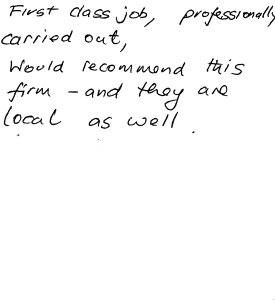 First class job, professionally
carried out,
Would recommend this
firm - and they are
local as well.